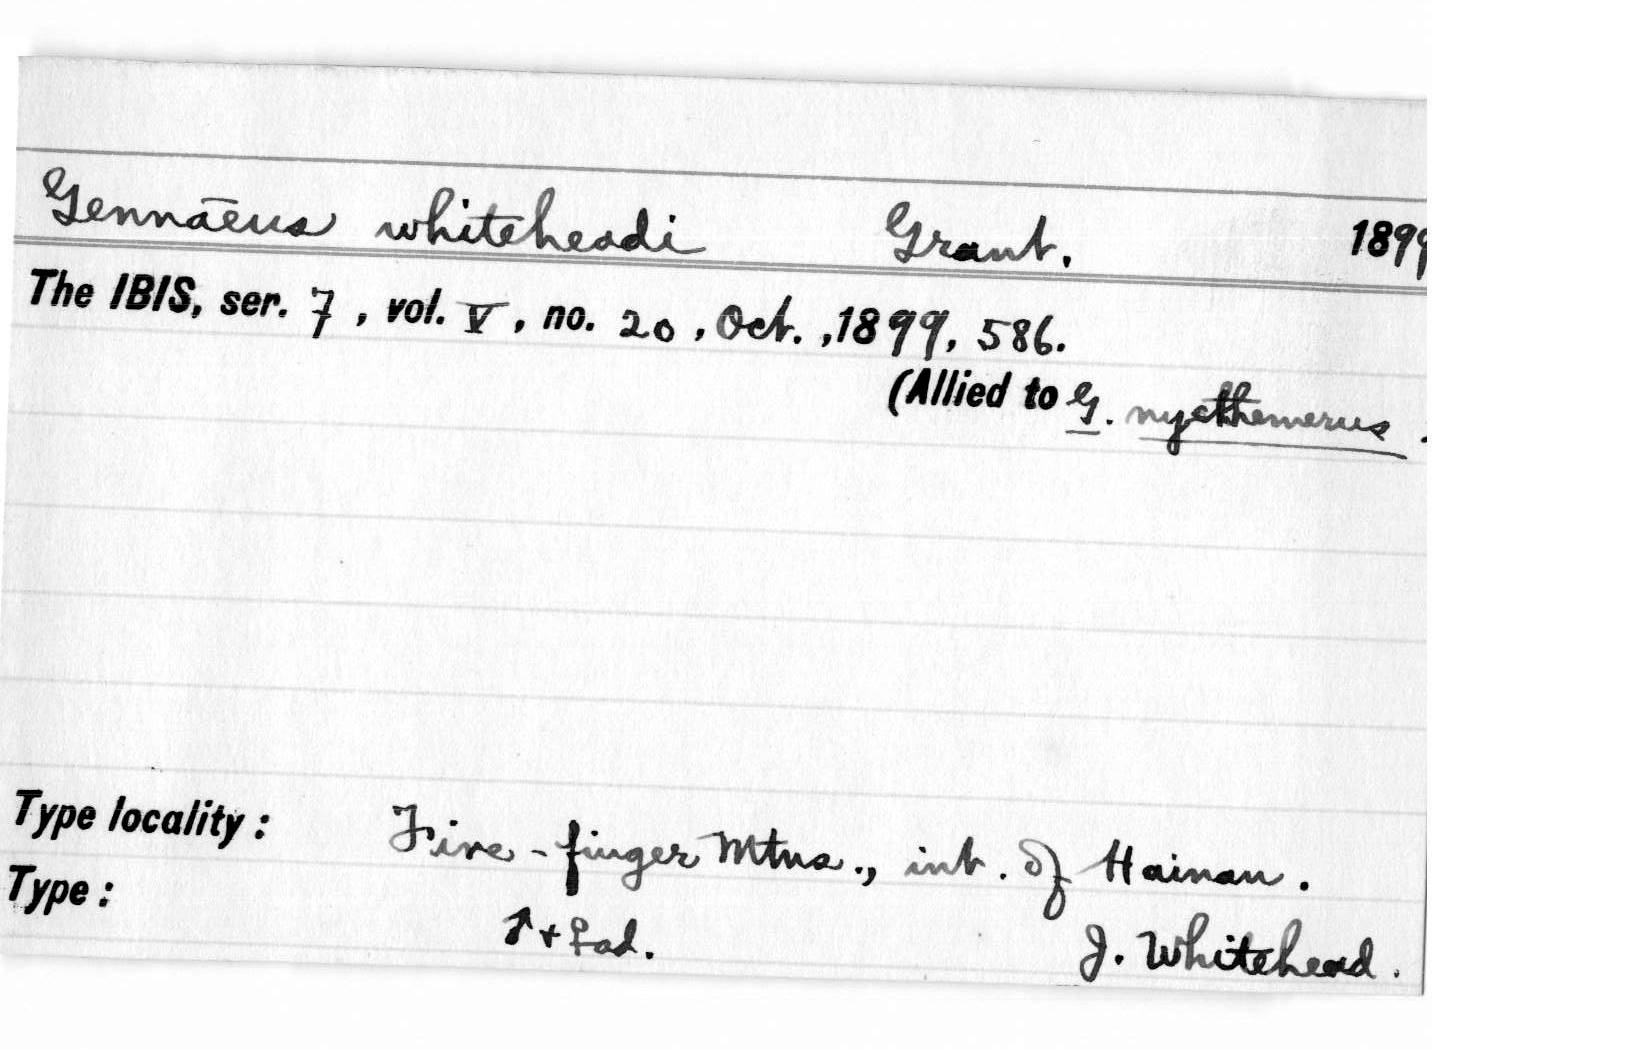 Gennāeus whiteheadi Grant. 1899
The IBIS, ser. 7, vol. V, no. 20, Oct., 1899, 586.
(Allied to G. nycthemerus.
Type locality: Five-finger Mtns., int. of Hainan.
Type: ♂ + ♀ ad. J. Whitehead.